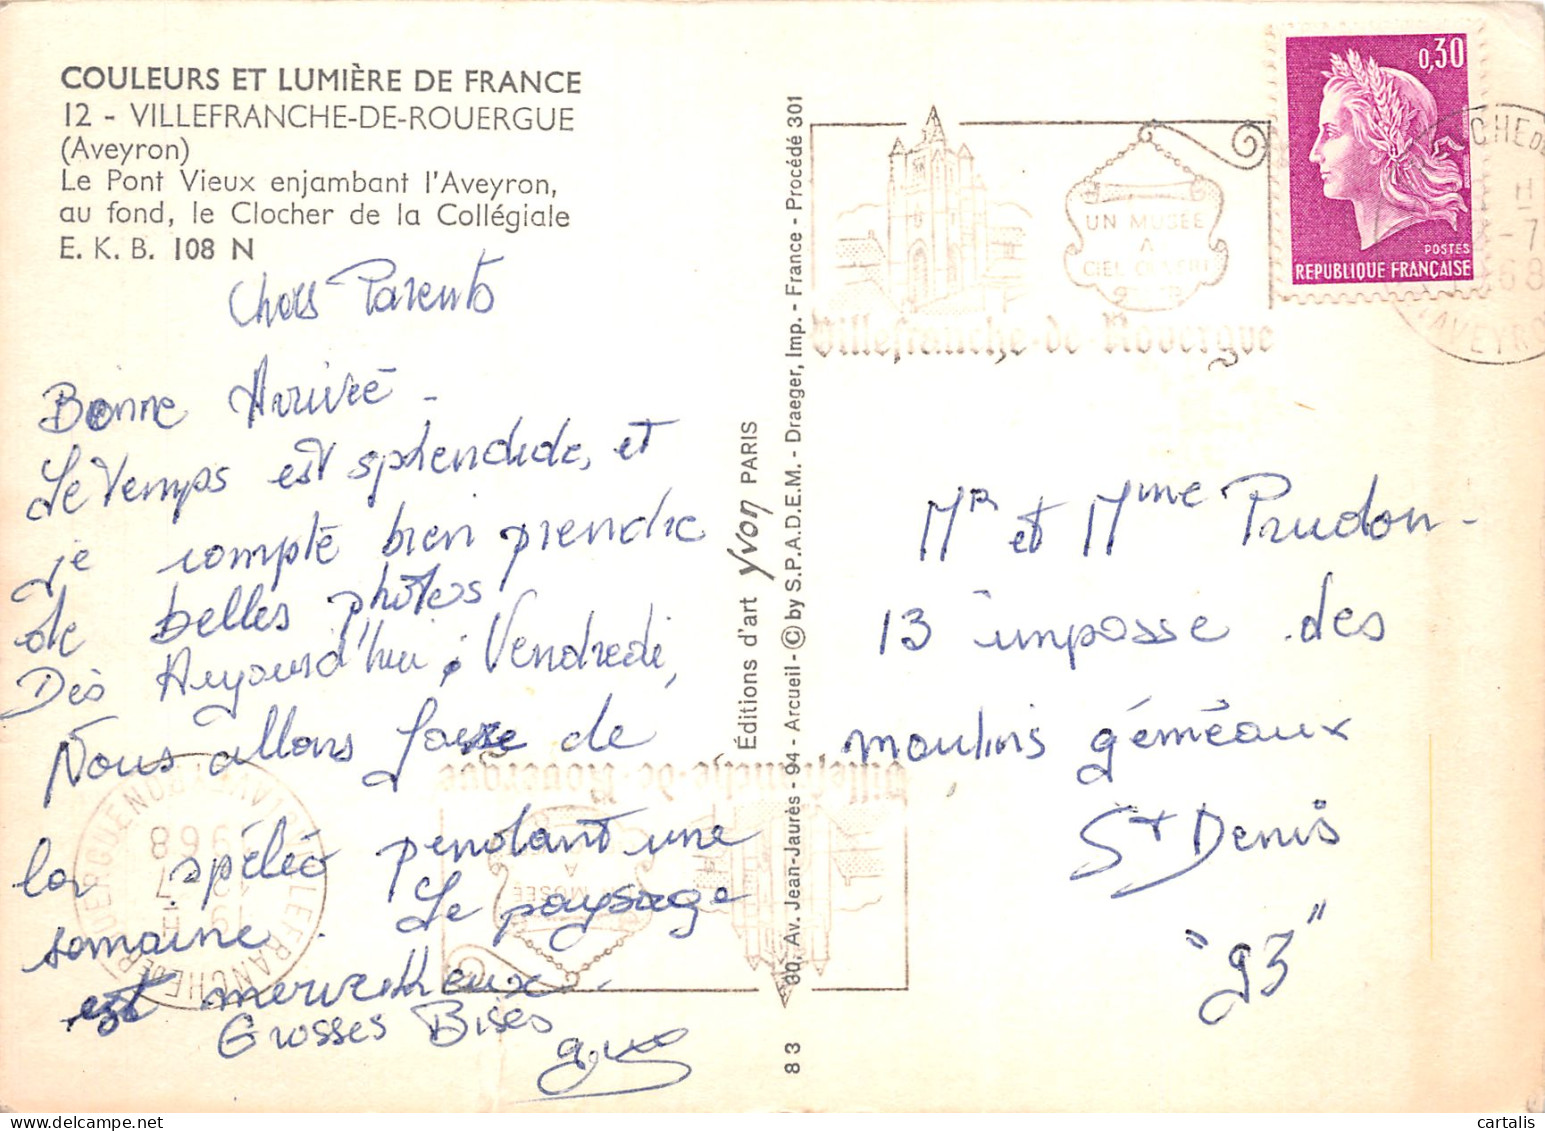 COULEURS ET LUMIÈRE DE FRANCE
12 - VILLEFRANCHE-DE-ROUERGUE
(Aveyron)
Le Pont Vieux enjambant l'Aveyron,
au fond, le Clocher de la Collégiale
E. K. B. 108 N
Chers Parents
Bonne Arrivée -
Le Temps est splendide, et
je compte bien prendre
de belles photos
Dès Aujourd'hui, Vendredi,
Nous allons faire de
la spéléo pendant une
semaine. Le paysage
est merveilleux.
Grosses Bises
83
Éditions d'art Yvon PARIS
80, Av. Jean-Jaurès - 94 - Arcueil - © by S.P.A.D.E.M. - Draeger, Imp. - France - Procédé 301
UN MUSÉE
A
CIEL OUVERT
Villefranche-de-Rouergue
0,30
POSTES
REPUBLIQUE FRANÇAISE
Mr et Mme Prudon -
13 impasse des
moulins gémeaux
St Denis
"93"
Villefranche-de-Rouergue
cartalis